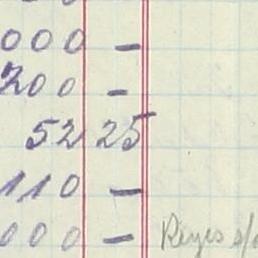 000 -
200 -
52 25
110 -
000 - Reyes s/